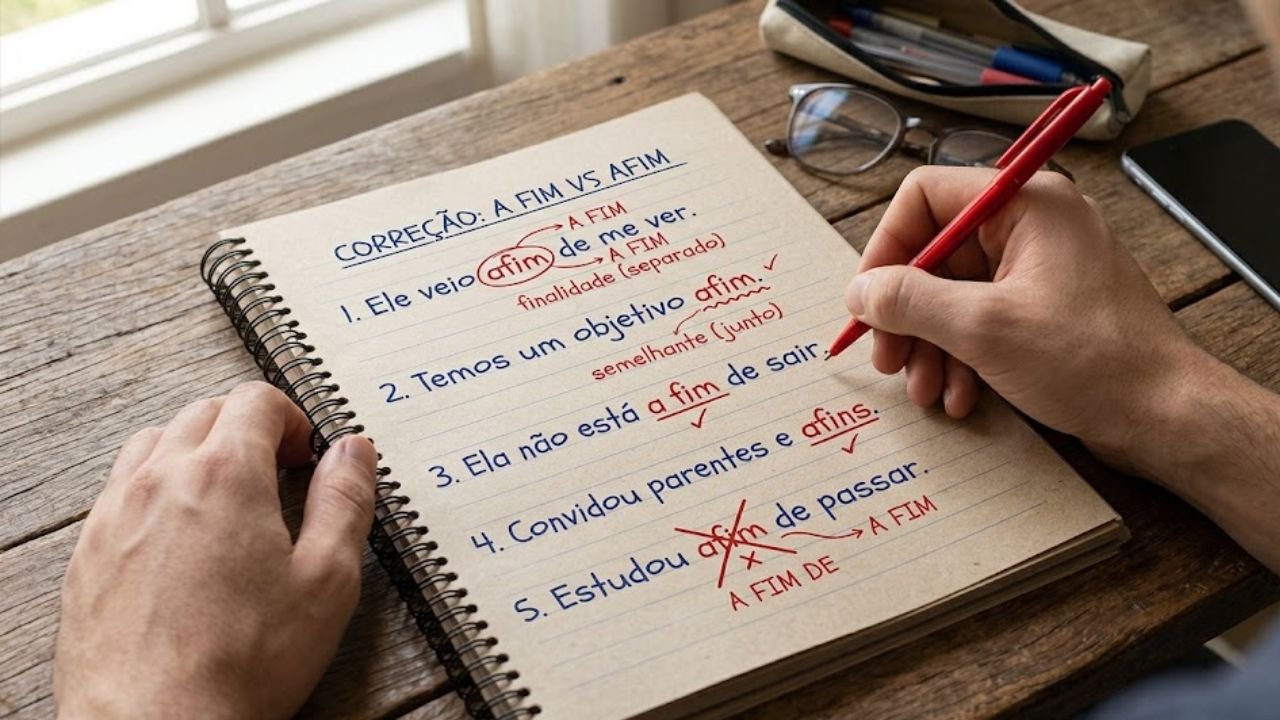 CORREÇÃO: A FIM VS AFIM
A FIM
1. Ele veio afim de me ver.
A FIM
finalidade (separado)
2. Temos um objetivo afim.
semelhante (junto)
3. Ela não está a fim de sair.
4. Convidou parentes e afins.
5. Estudou afim de passar.
A FIM
A FIM DE